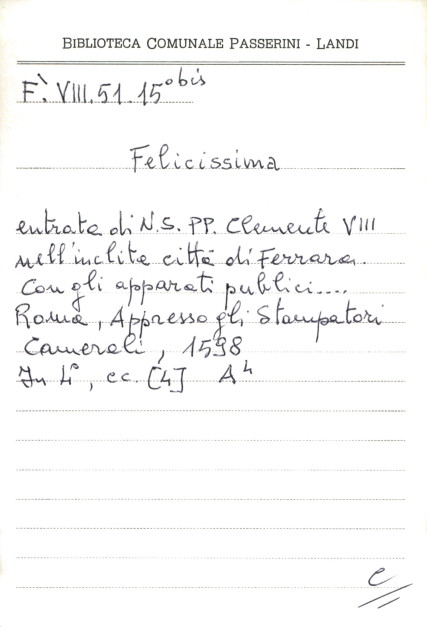 BIBLIOTECA COMUNALE PASSERINI - LANDI
F. VIII.51.15° bis
Felicissima
entrata di N.S. PP. Clemente VIII
nell'inclita città di Ferrara.
Con gli apparati publici....
Roma, Appresso gli Stampatori
Camerali, 1598
In 4°, cc. [4] A4
e